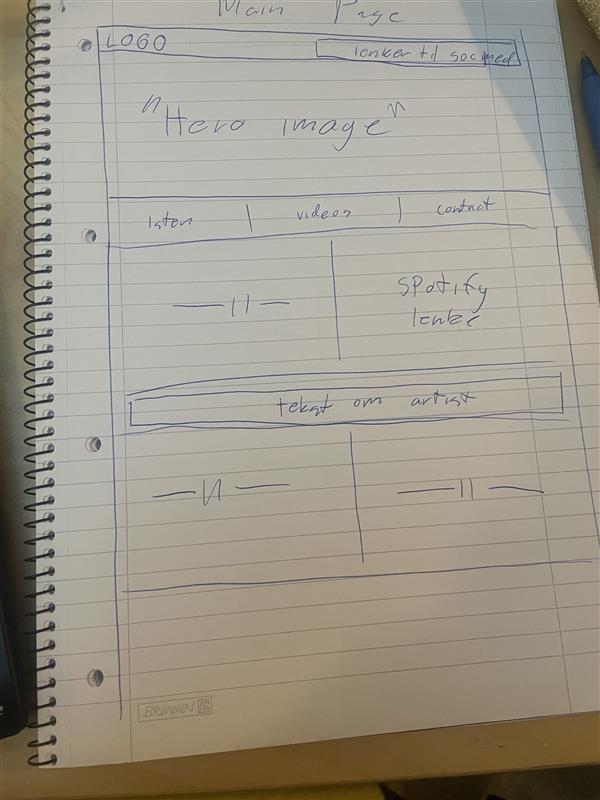 Main Page
LOGO
lenker til socmed
"Hero image"
listen | videos | contact
— 11 —
spotify
lenke
tekst om artist
— 11 —
— 11 —
BRUNNEN